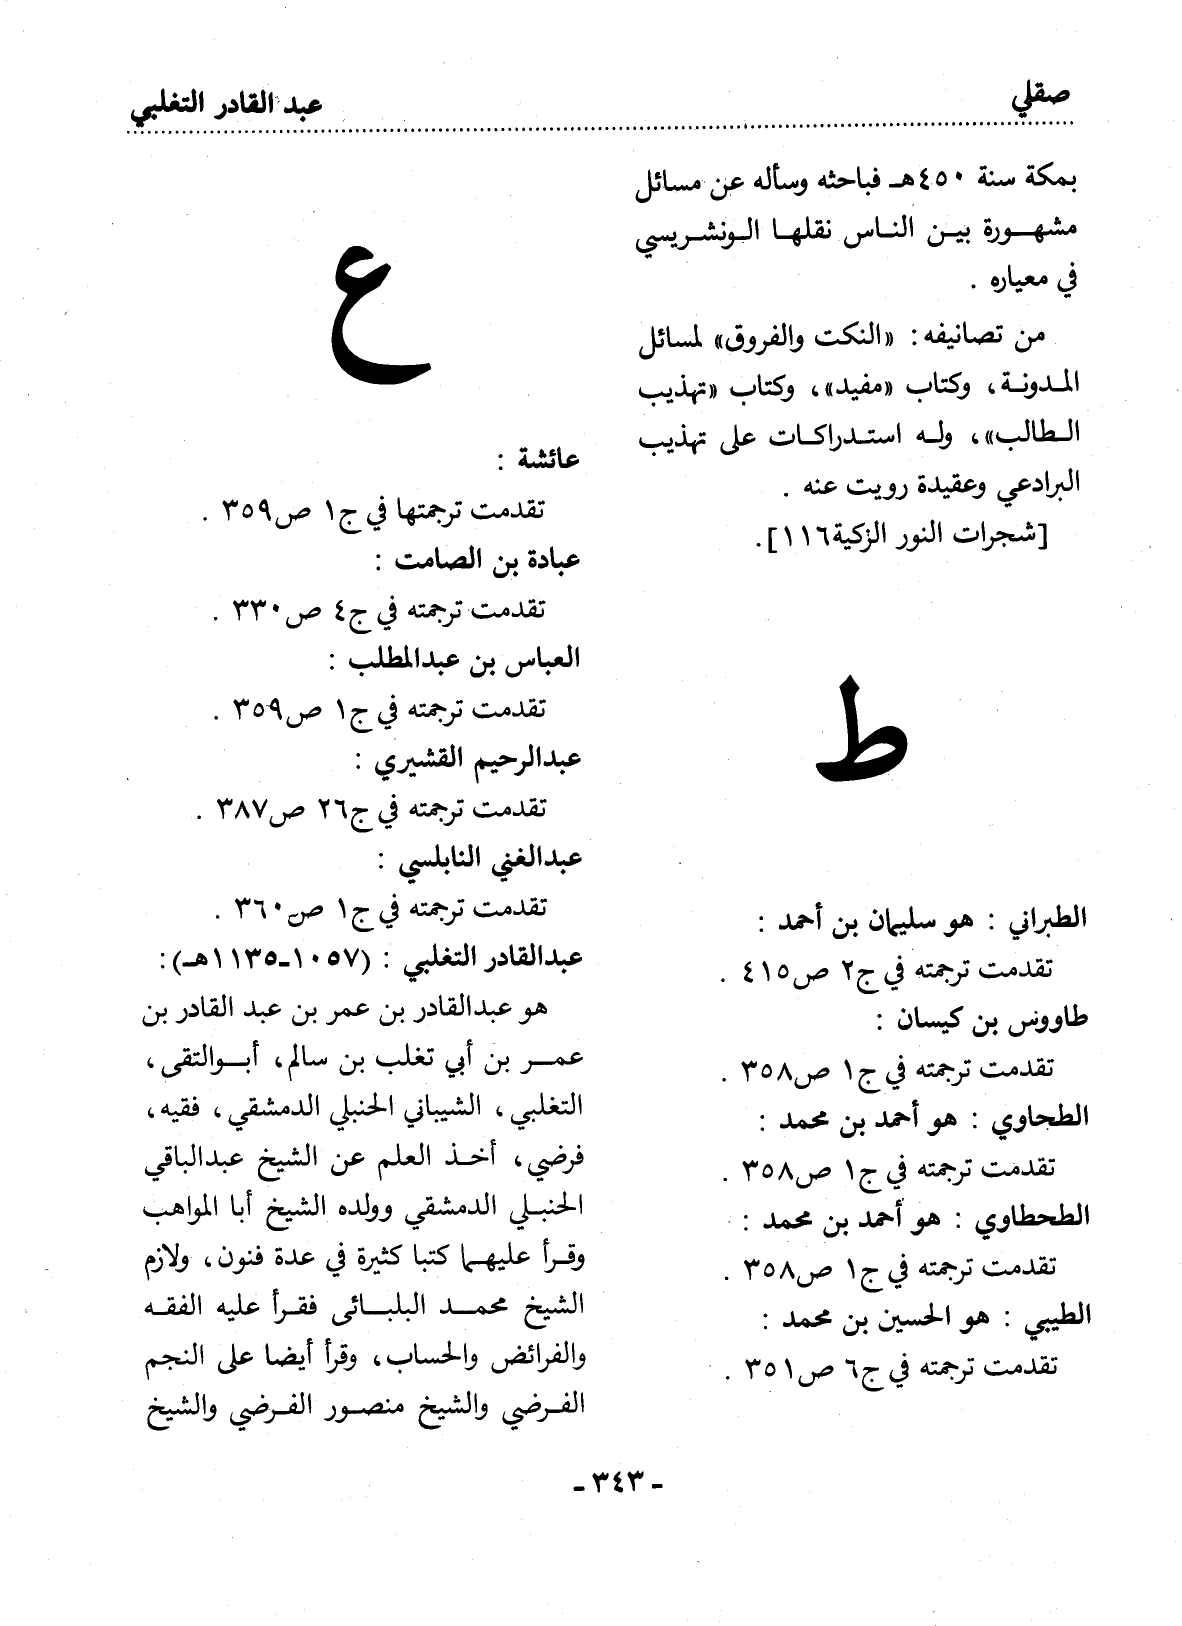 صقلي
عبد القادر التغلبي
بمكة سنة ٤٥٠هـ فباحثه وسأله عن مسائل
مشهورة بين الناس نقلها الونشريسي
في معياره .
من تصانيفه: «النكت والفروق» لمسائل
المدونة، وكتاب «مفيد»، وكتاب «تهذيب
الطالب»، وله استدراكات على تهذيب
البرادعي وعقيدة رويت عنه .
[شجرات النور الزكية١١٦].
ط
الطبراني : هو سليمان بن أحمد :
تقدمت ترجمته في ج٢ ص٤١٥ .
طاووس بن كيسان :
تقدمت ترجمته في ج١ ص٣٥٨ .
الطحاوي : هو أحمد بن محمد :
تقدمت ترجمته في ج١ ص٣٥٨ .
الطحطاوي : هو أحمد بن محمد :
تقدمت ترجمته في ج١ ص٣٥٨ .
الطيبي : هو الحسين بن محمد :
تقدمت ترجمته في ج٦ ص٣٥١ .
ع
عائشة :
تقدمت ترجمتها في ج١ ص٣٥٩ .
عبادة بن الصامت :
تقدمت ترجمته في ج٤ ص٣٣٠ .
العباس بن عبدالمطلب :
تقدمت ترجمته في ج١ ص٣٥٩ .
عبدالرحيم القشيري :
تقدمت ترجمته في ج٢٦ ص٣٨٧ .
عبدالغني النابلسي :
تقدمت ترجمته في ج١ ص٣٦٠ .
عبدالقادر التغلبي : (١٠٥٧ـ١١٣٥هـ):
هو عبدالقادر بن عمر بن عبد القادر بن
عمر بن أبي تغلب بن سالم، أبوالتقى،
التغلبي، الشيباني الحنبلي الدمشقي، فقيه،
فرضي، أخذ العلم عن الشيخ عبدالباقي
الحنبلي الدمشقي وولده الشيخ أبا المواهب
وقرأ عليهما كتبا كثيرة في عدة فنون، ولازم
الشيخ محمد البلبائى فقرأ عليه الفقه
والفرائض والحساب، وقرأ أيضا على النجم
الفرضي والشيخ منصور الفرضي والشيخ
- ٣٤٣ -